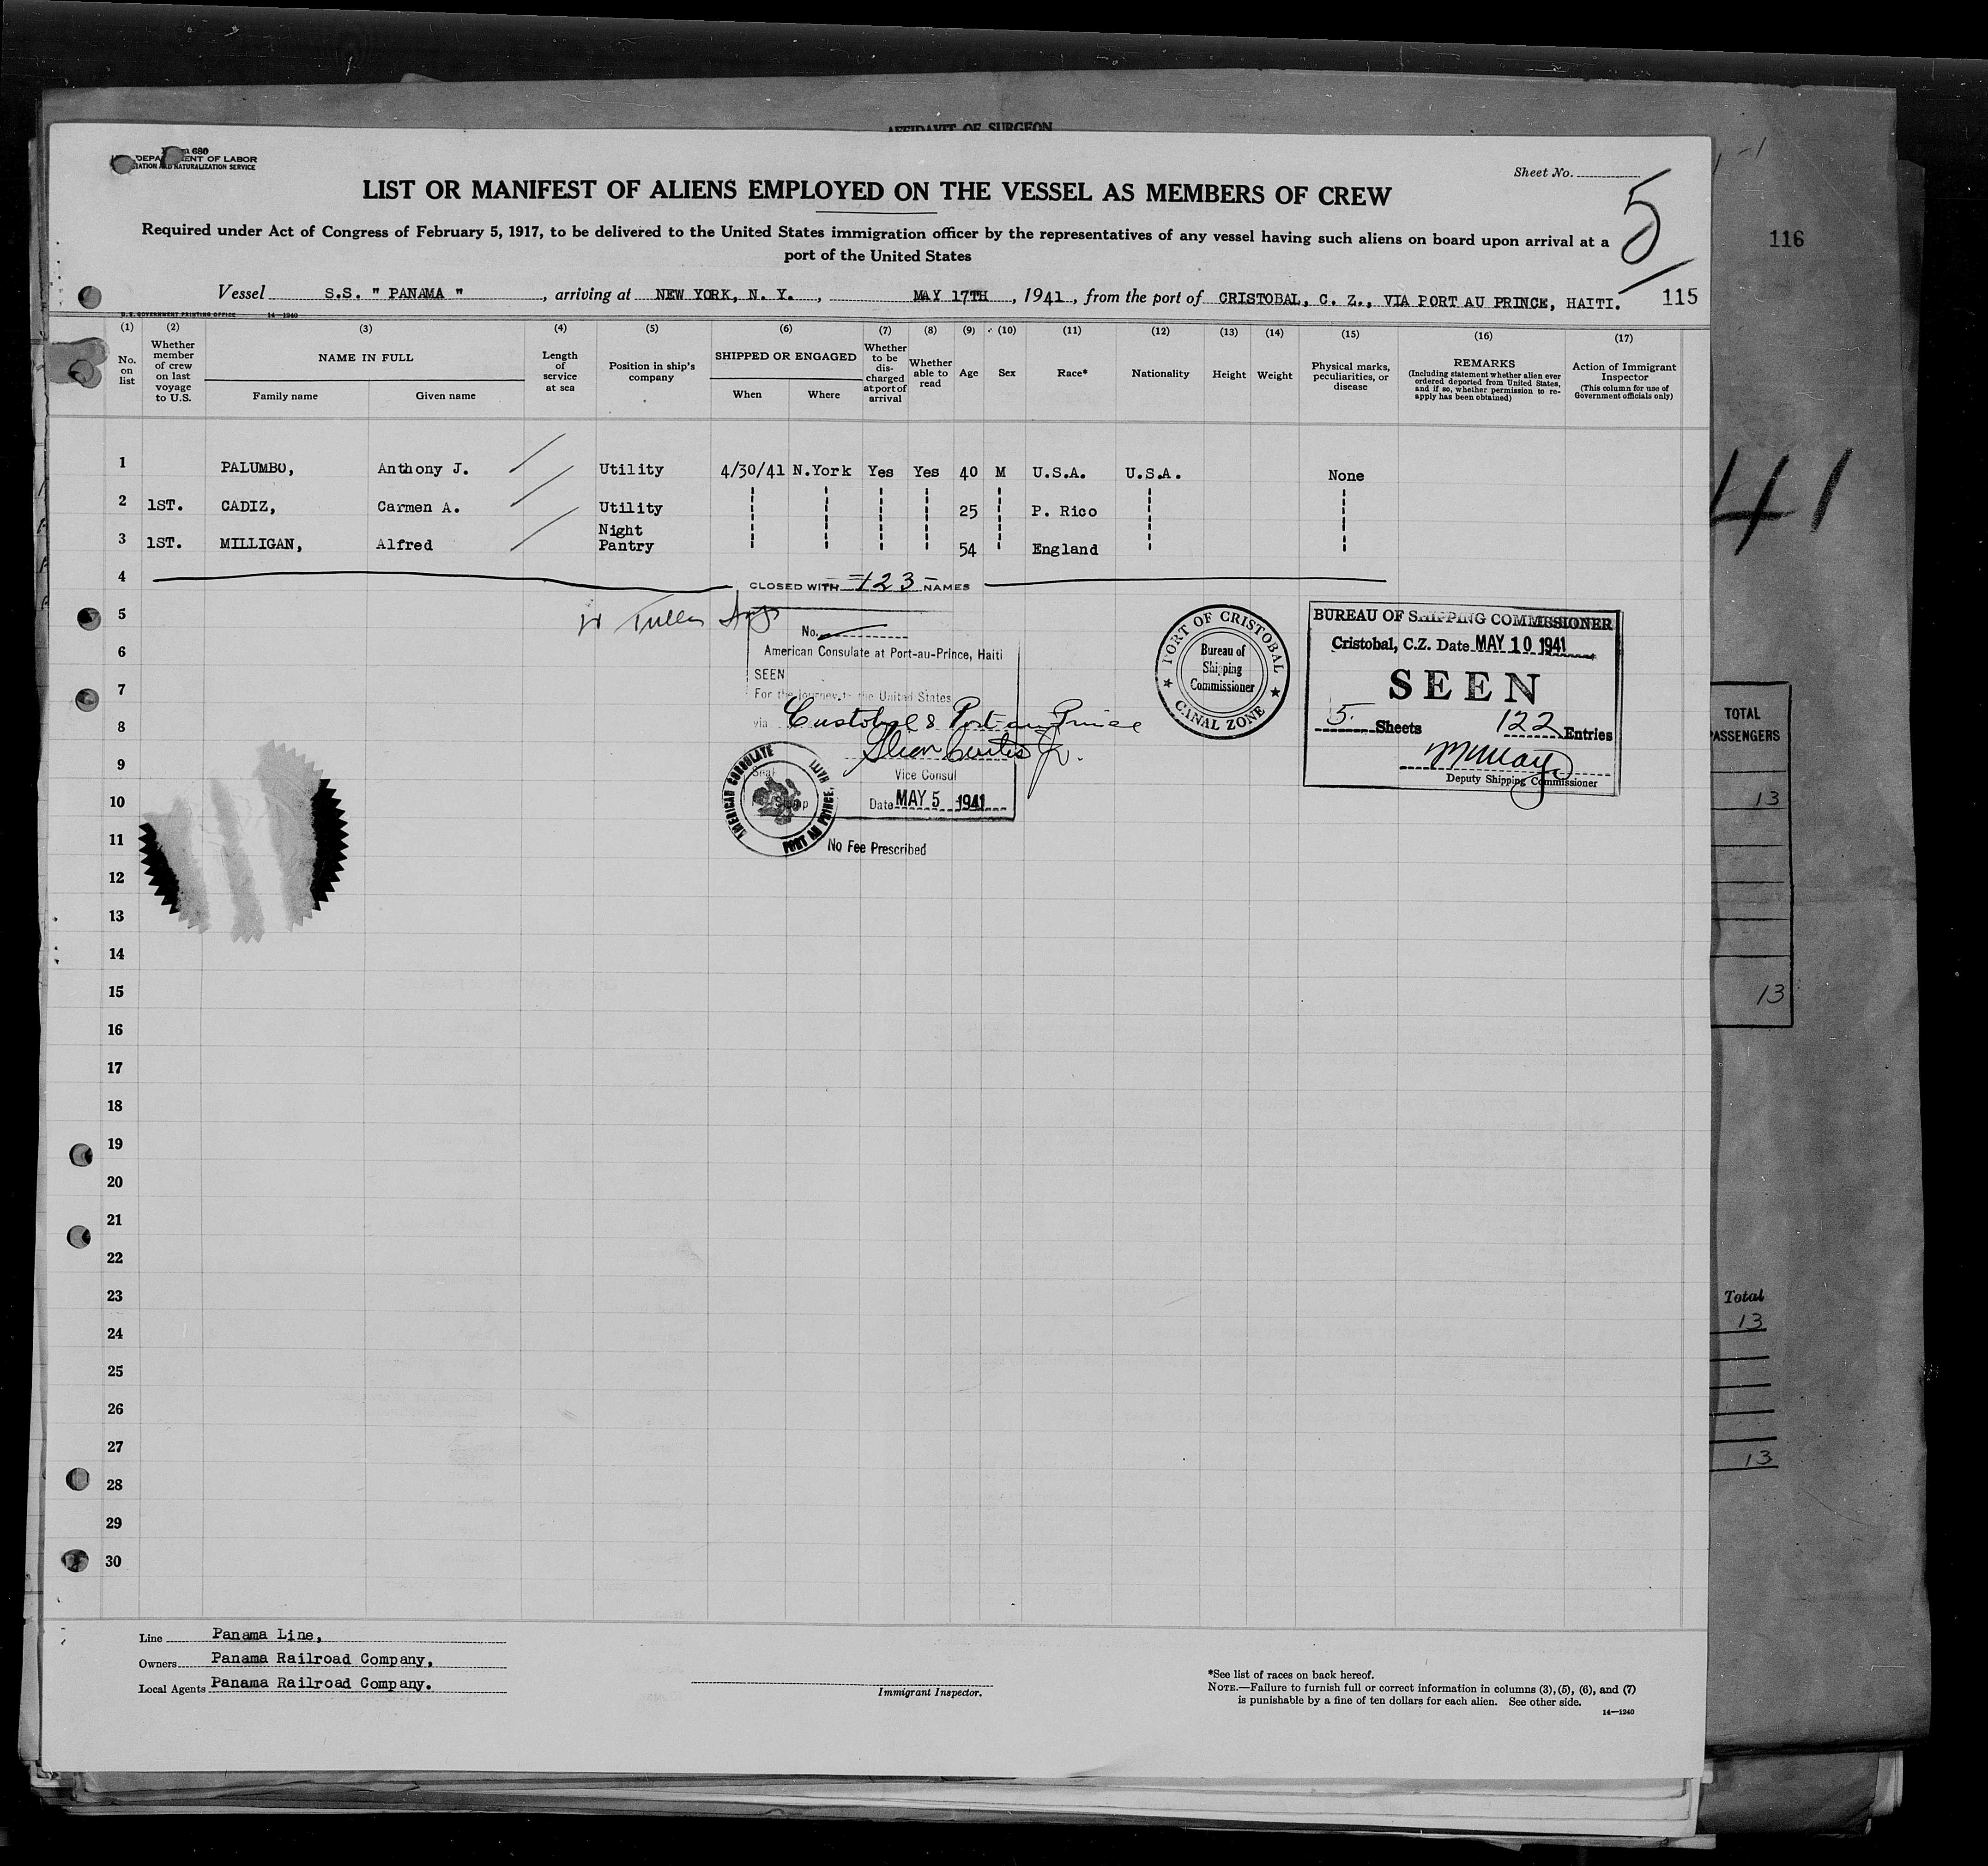 AFFIDAVIT OF SURGEON
680
DEPARTMENT OF LABOR
NATURALIZATION SERVICE
Sheet No.
5
LIST OR MANIFEST OF ALIENS EMPLOYED ON THE VESSEL AS MEMBERS OF CREW
Required under Act of Congress of February 5, 1917, to be delivered to the United States immigration officer by the representatives of any vessel having such aliens on board upon arrival at a
port of the United States
116
Vessel S.S. " PANAMA " , arriving at NEW YORK, N. Y. , MAY 17TH , 1941 , from the port of CRISTOBAL, C. Z., VIA PORT AU PRINCE, HAITI. 115
U.S. GOVERNMENT PRINTING OFFICE 14—1240
(1) (2) (3) (4) (5) (6) (7) (8) (9) (10) (11) (12) (13) (14) (15) (16) (17)
No. on list
Whether member of crew on last voyage to U.S.
NAME IN FULL
Family name Given name
Length of service at sea
Position in ship's company
SHIPPED OR ENGAGED
When Where
Whether to be discharged at port of arrival
Whether able to read
Age
Sex
Race*
Nationality
Height
Weight
Physical marks, peculiarities, or disease
REMARKS
(Including statement whether alien ever ordered deported from United States, and if so, whether permission to re-apply has been obtained)
Action of Immigrant Inspector
(This column for use of Government officials only)
1 PALUMBO, Anthony J. Utility 4/30/41 N.York Yes Yes 40 M U.S.A. U.S.A. None
2 1ST. CADIZ, Carmen A. Utility 25 P. Rico
3 1ST. MILLIGAN, Alfred Night Pantry 54 England
41
4
CLOSED WITH 123 NAMES
5
No.
6
American Consulate at Port-au-Prince, Haiti
SEEN
7
For the journey to the United States
8
via Cristobal & Port-au-Prince
9
Vice Consul
Seal
Stamp
10
Date MAY 5 1941
AMERICAN CONSULATE
PORT AU PRINCE, HAITI
No Fee Prescribed
PORT OF CRISTOBAL
Bureau of
Shipping
Commissioner
CANAL ZONE
BUREAU OF SHIPPING COMMISSIONER
Cristobal, C.Z. Date MAY 10 1941
SEEN
5 Sheets 122 Entries
Deputy Shipping Commissioner
11
12
13
14
15
16
17
18
19
20
21
22
23
24
25
26
27
28
29
30
TOTAL
PASSENGERS
13
13
Total
13
13
Line Panama Line,
Owners Panama Railroad Company,
Local Agents Panama Railroad Company.
Immigrant Inspector.
*See list of races on back hereof.
NOTE.—Failure to furnish full or correct information in columns (3), (5), (6), and (7)
is punishable by a fine of ten dollars for each alien. See other side.
14—1240